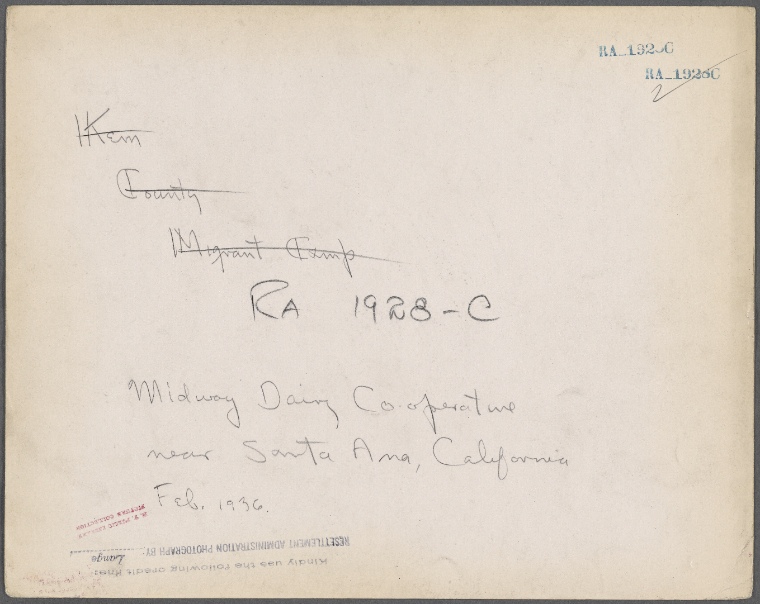 RA_192 C
RA_1928C
2
Kern
County
Migrant Camp
RA 1928-C
Midway Dairy Co-operative
near Santa Ana, California
Feb. 1936.
N. Y. PUBLIC LIBRARY
PICTURE COLLECTION
Kindly use the following credit line:
RESETTLEMENT ADMINISTRATION PHOTOGRAPH BY
Lange